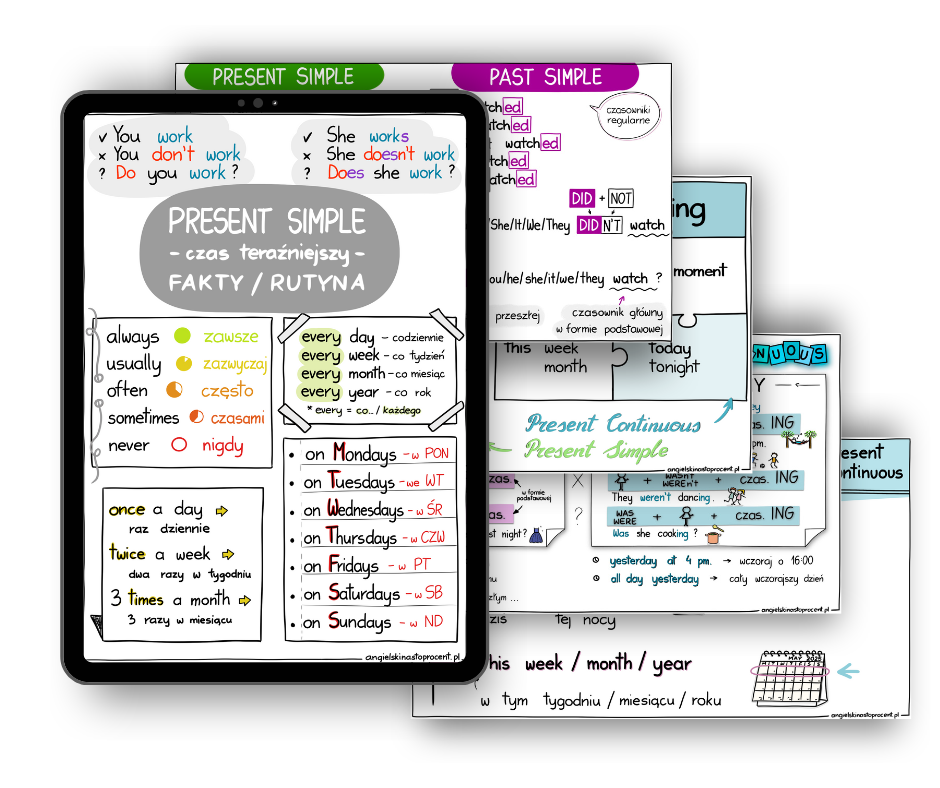 ✓ You work
× You don't work
? Do you work ?
✓ She works
× She doesn't work
? Does she work ?
PRESENT SIMPLE
- czas teraźniejszy -
FAKTY / RUTYNA
always zawsze
usually zazwyczaj
often często
sometimes czasami
never nigdy
every day - codziennie
every week - co tydzień
every month - co miesiąc
every year - co rok
* every = co.. / każdego
once a day
raz dziennie
twice a week
dwa razy w tygodniu
3 times a month
3 razy w miesiącu
• on Mondays - w PON
• on Tuesdays - we WT
• on Wednesdays - w ŚR
• on Thursdays - w CZW
• on Fridays - w PT
• on Saturdays - w SB
• on Sundays - w ND
angielskinastoprocent.pl
PRESENT SIMPLE
PAST SIMPLE
czasowniki
regularne
tched
atched
watched
tched
atched
DID + NOT
She/It/We/They DIDN'T watch
ou/he/she/it/we/they watch ?
przeszłej
czasownik główny
w formie podstawowej
ing
moment
This week
month
today
tonight
Present Continuous
Present Simple
angielskinastoprocent.pl
NUOUS
Y
czas. ING
pm.
zas.
w formie
podstawowej
as.
X
?
st night?
WASN'T
WEREN'T
+ + czas. ING
They weren't dancing.
WAS
WERE
+ + czas. ING
Was she cooking ?
yesterday at 4 pm. → wczoraj o 16:00
all day yesterday → cały wczorajszy dzień
nu
złym ...
angielskinastoprocent.pl
esent
ontinuous
dzis tej nocy
his week / month / year
w tym tygodniu / miesiącu / roku
MAY 2025
angielskinastoprocent.pl